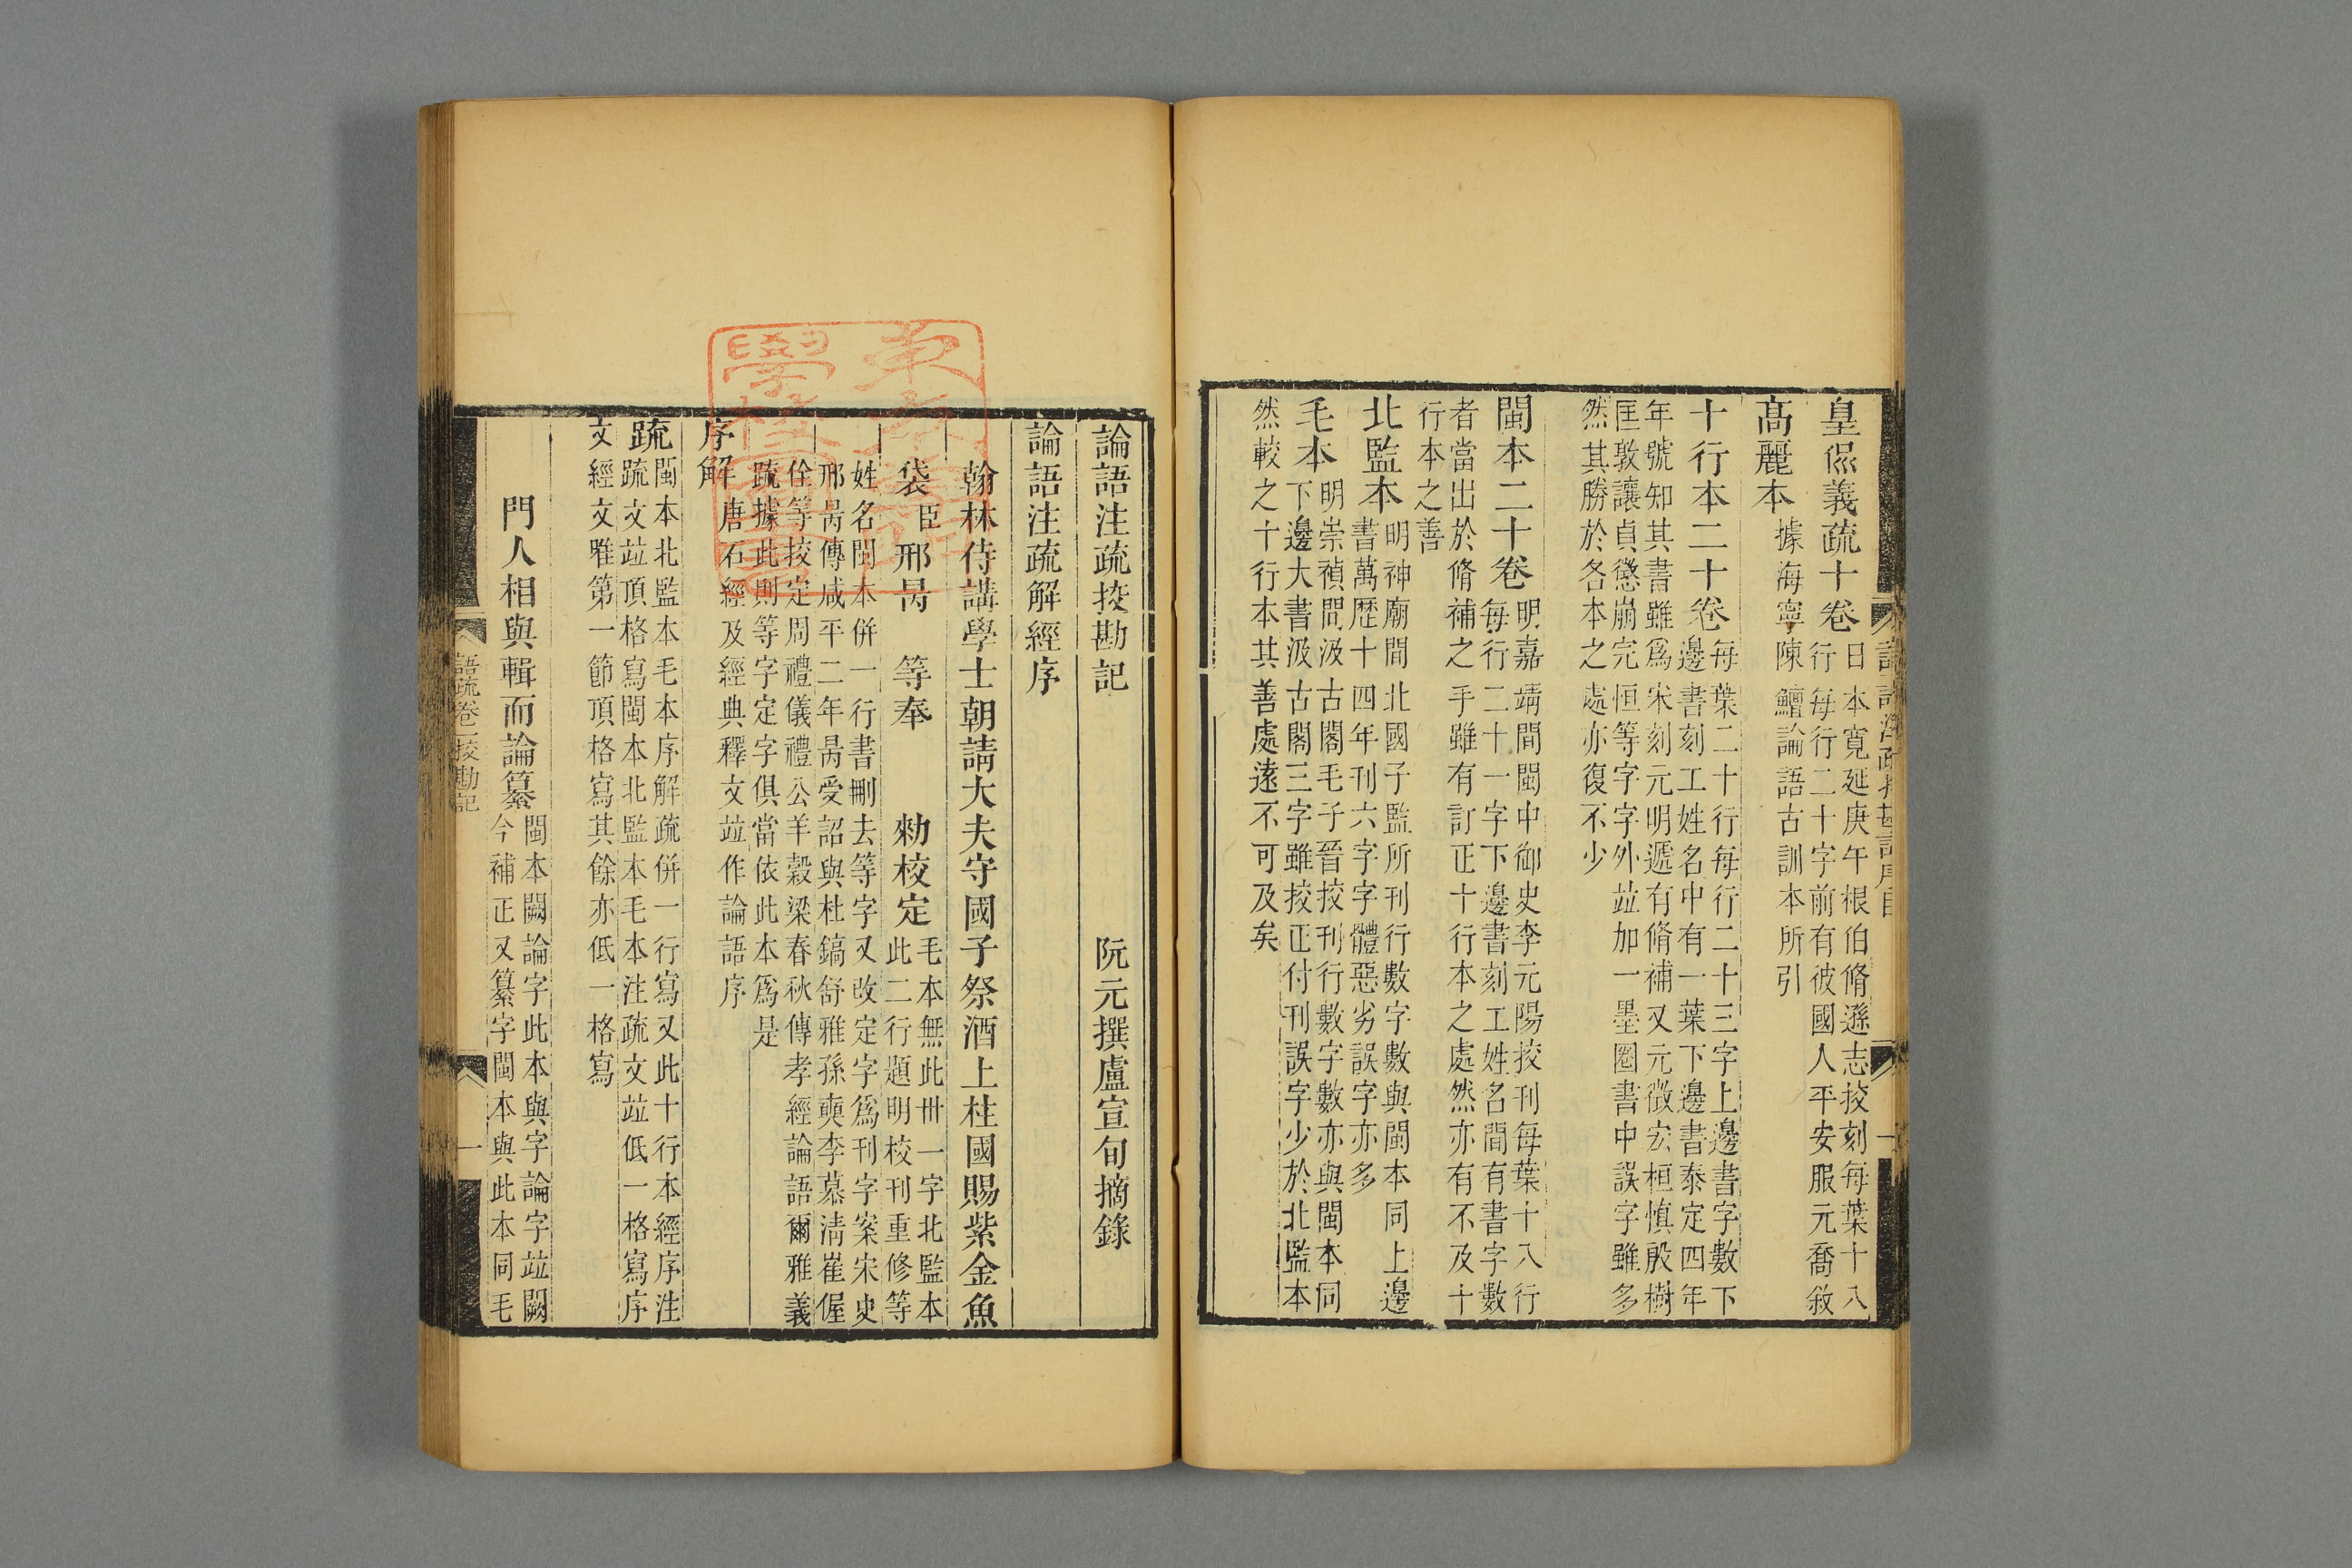 皇侃義疏十卷
日本寬延庚午根伯脩遜志挍刻每葉十八
行每行二十字前有彼國人平安服元喬敘
高麗本
據海寧陳鱣論語古訓本所引
十行本二十卷
每葉二十行每行二十三字上邊書字數下
邊書刻工姓名中有一葉下邊書泰定四年
年號知其書雖爲宋刻元明遞有脩補又元徵宏桓慎殷樹
匡敦讓貞懲崩完恒等字字外竝加一墨圈書中誤字雖多
然其勝於各本之處亦復不少
閩本二十卷
明嘉靖間閩中御史李元陽挍刊每葉十八行
每行二十一字下邊書刻工姓名間有書字數
者當出於脩補之手雖有訂正十行本之處然亦有不及十
行本之善
北監本
明神廟間北國子監所刊行數字數與閩本同上邊
書萬歷十四年刊六字字體惡劣誤字亦多
毛本
明崇禎間汲古閣毛子晉挍刊行數字數亦與閩本同
下邊大書汲古閣三字雖挍正付刊誤字少於北監本
然較之十行本其善處遠不可及矣
論語注疏挍勘記
阮元撰盧宣旬摘錄
論語注疏解經序
翰林侍講學士朝請大夫守國子祭酒上柱國賜紫金魚
袋臣邢昺 等奉 勑校定
毛本無此卅一字北監本
此二行題明校刊重修等
姓名閩本併一行書刪去等字又改定字爲刊字案宋史
邢昺傳咸平二年昺受詔與杜鎬舒雅孫奭李慕清崔偓
佺等挍定周禮儀禮公羊穀梁春秋傳孝經論語爾雅義
疏據此則等字定字俱當依此本爲是
序解
唐石經及經典釋文竝作論語序
疏
閩本北監本毛本序解疏併一行寫又此十行本經序注
疏文竝頂格寫閩本北監本毛本注疏文竝低一格寫序
文經文雅第一節頂格寫其餘亦低一格寫
門人相與輯而論纂
閩本闕論字此本與字論字竝闕
今補正又纂字閩本與此本同毛
語疏卷一挍勘記
一